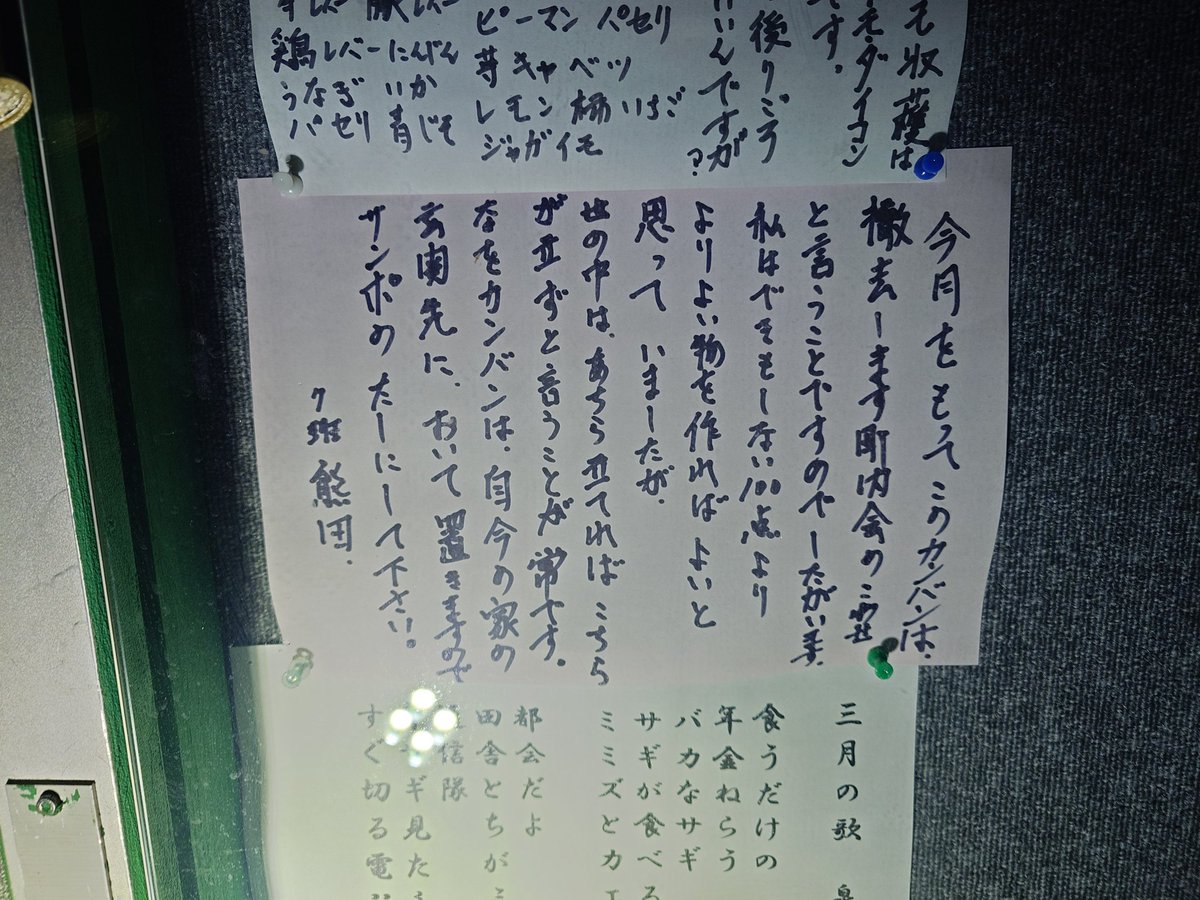 も収穫は
モ・ダイコン
です。
の後りごう
いいんですが
?
ピーマン パセリ
芋 キャベツ
レモン 柿 いちご
ジャガイモ
鶏レバー にんげん
うなぎ
パセリ 青じそ
今月をもってこのカンバンは、
撤去します町内会の
と言うことですのでしたがいます
私はできもしない100点より
よりよい物を作ればよいと
思って いましたが、
世の中は、あちら立てれば こちら
が立ずと言うことが常です。
なをカンバンは、自今の家の
玄関先に、おいて置きますので
サンポの たしにして下さい。
7班 熊田.
三月の歌
食うだけの
年金ねらう
バカなサギ
サギが食べる
ミミズとカエ
都会だよ
田舎とちが
信隊
ギ見たら
すぐ切る電